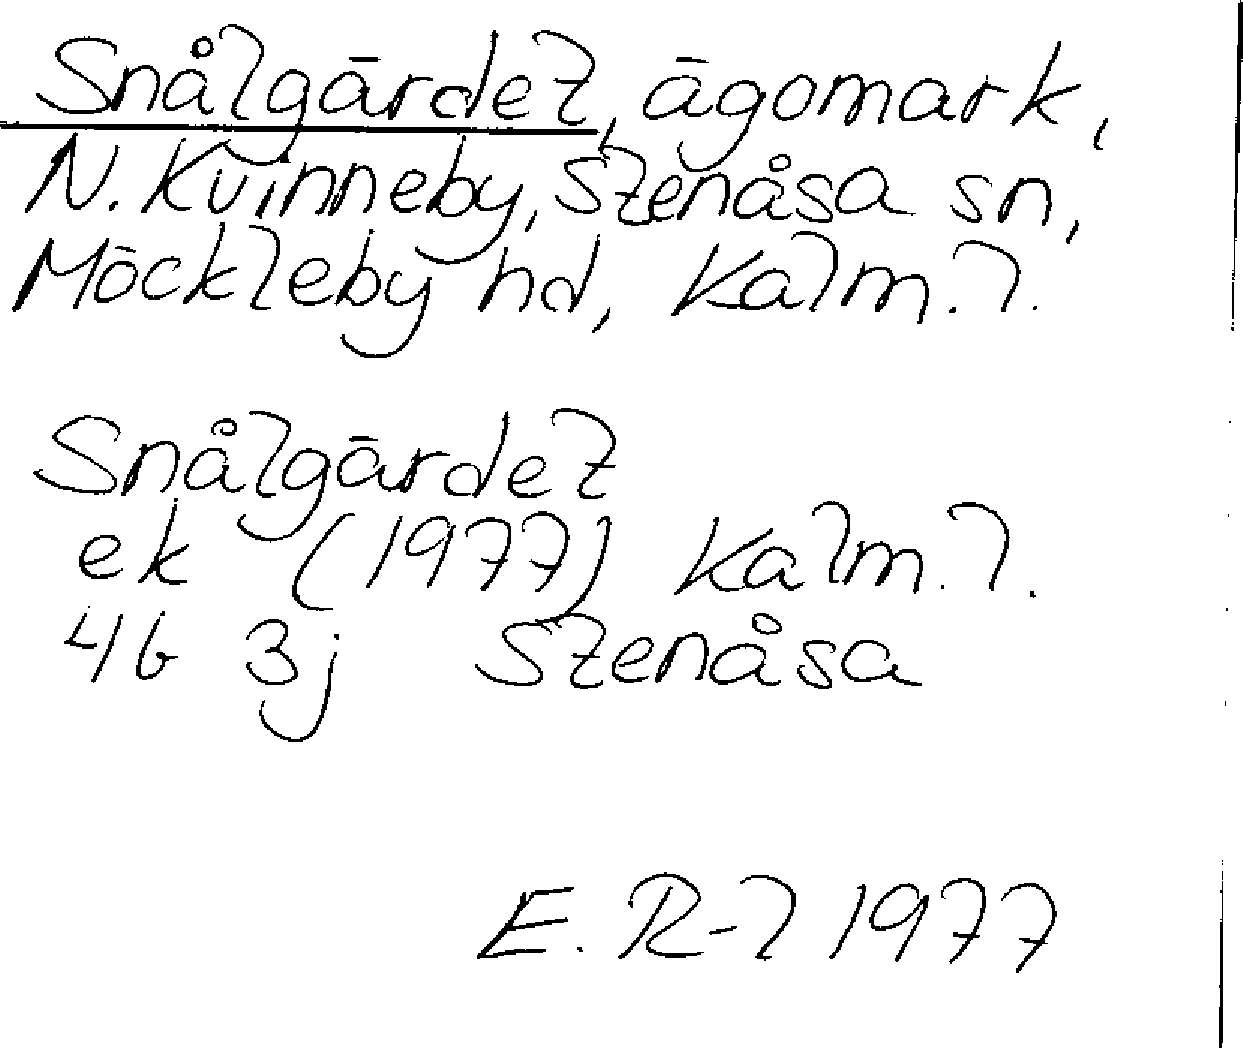 Snålgärdet, ägomark,
N. Kvinneby, Stenåsa sn,
Möckleby hd, Kalm. l.
Snålgärdet
ek (1977) Kalm. l.
4G 3j Stenåsa
E. R-l 1977